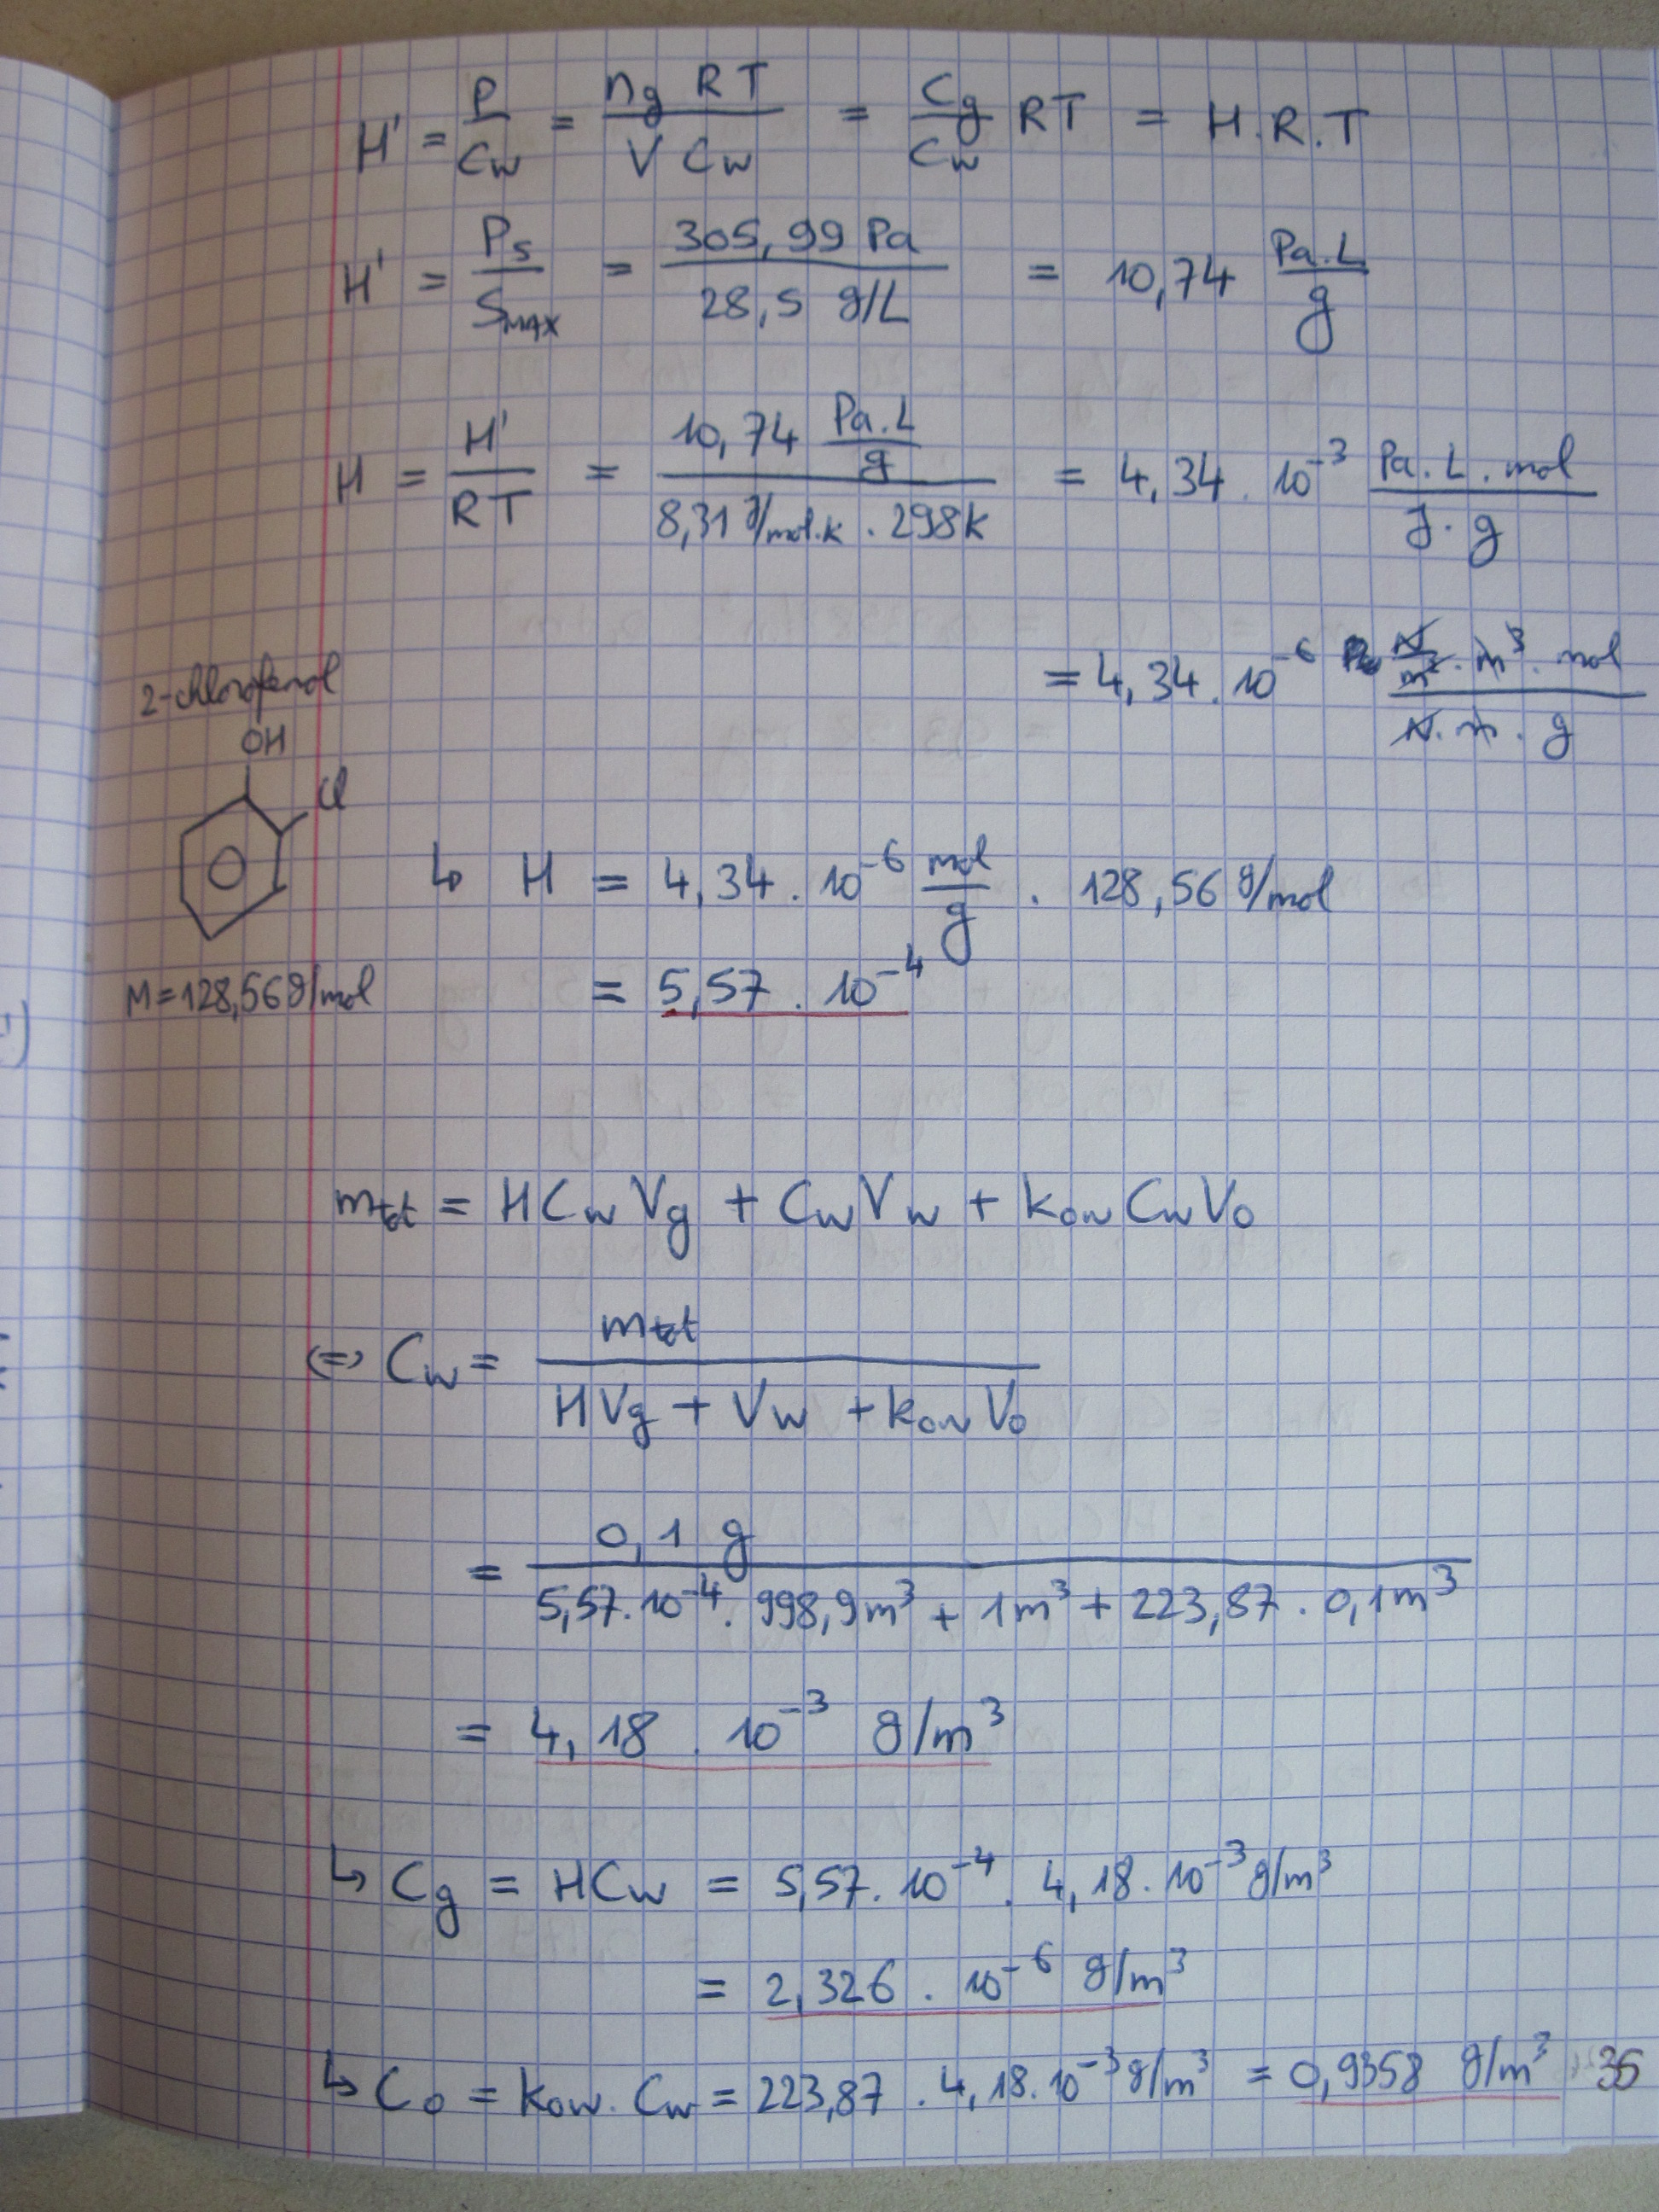 H' = P/Cw = ng RT / V Cw = Cg/Cw RT = H.R.T
H' = Ps/SMAX = 305,99 Pa / 28,5 g/L = 10,74 Pa.L/g
H = H'/RT = 10,74 Pa.L/g / 8,31 J/mol.K . 298K = 4,34 . 10⁻³ Pa.L.mol / J.g
= 4,34 . 10⁻⁶ N/m² . m³ . mol / N.m.g
2-chlorofenol
OH
Cl
↳ H = 4,34 . 10⁻⁶ mol/g . 128,56 g/mol
M = 128,56 g/mol
= 5,57 . 10⁻⁴
mtot = HCwVg + CwVw + kow CwVo
<=> Cw = mtot / HVg + Vw + kow Vo
= 0,1 g / 5,57.10⁻⁴ . 998,9m³ + 1m³ + 223,87 . 0,1m³
= 4,18 . 10⁻³ g/m³
↳ Cg = HCw = 5,57.10⁻⁴ . 4,18.10⁻³ g/m³
= 2,326 . 10⁻⁶ g/m³
↳ Co = kow. Cw = 223,87 . 4,18.10⁻³ g/m³ = 0,9358 g/m³ 35